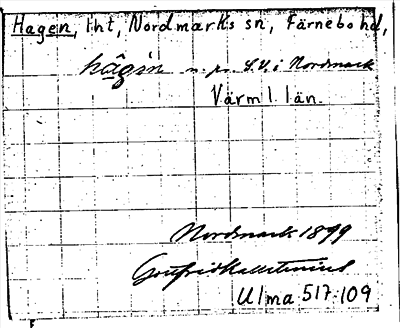 Hagen, lht, Nordmarks sn, Färnebo hd,
hâgin n. pr. S.V. i Nordmark
Värml. län.
Nordmark 1899
Gottfrid Kallstenius
Ulma 517:109